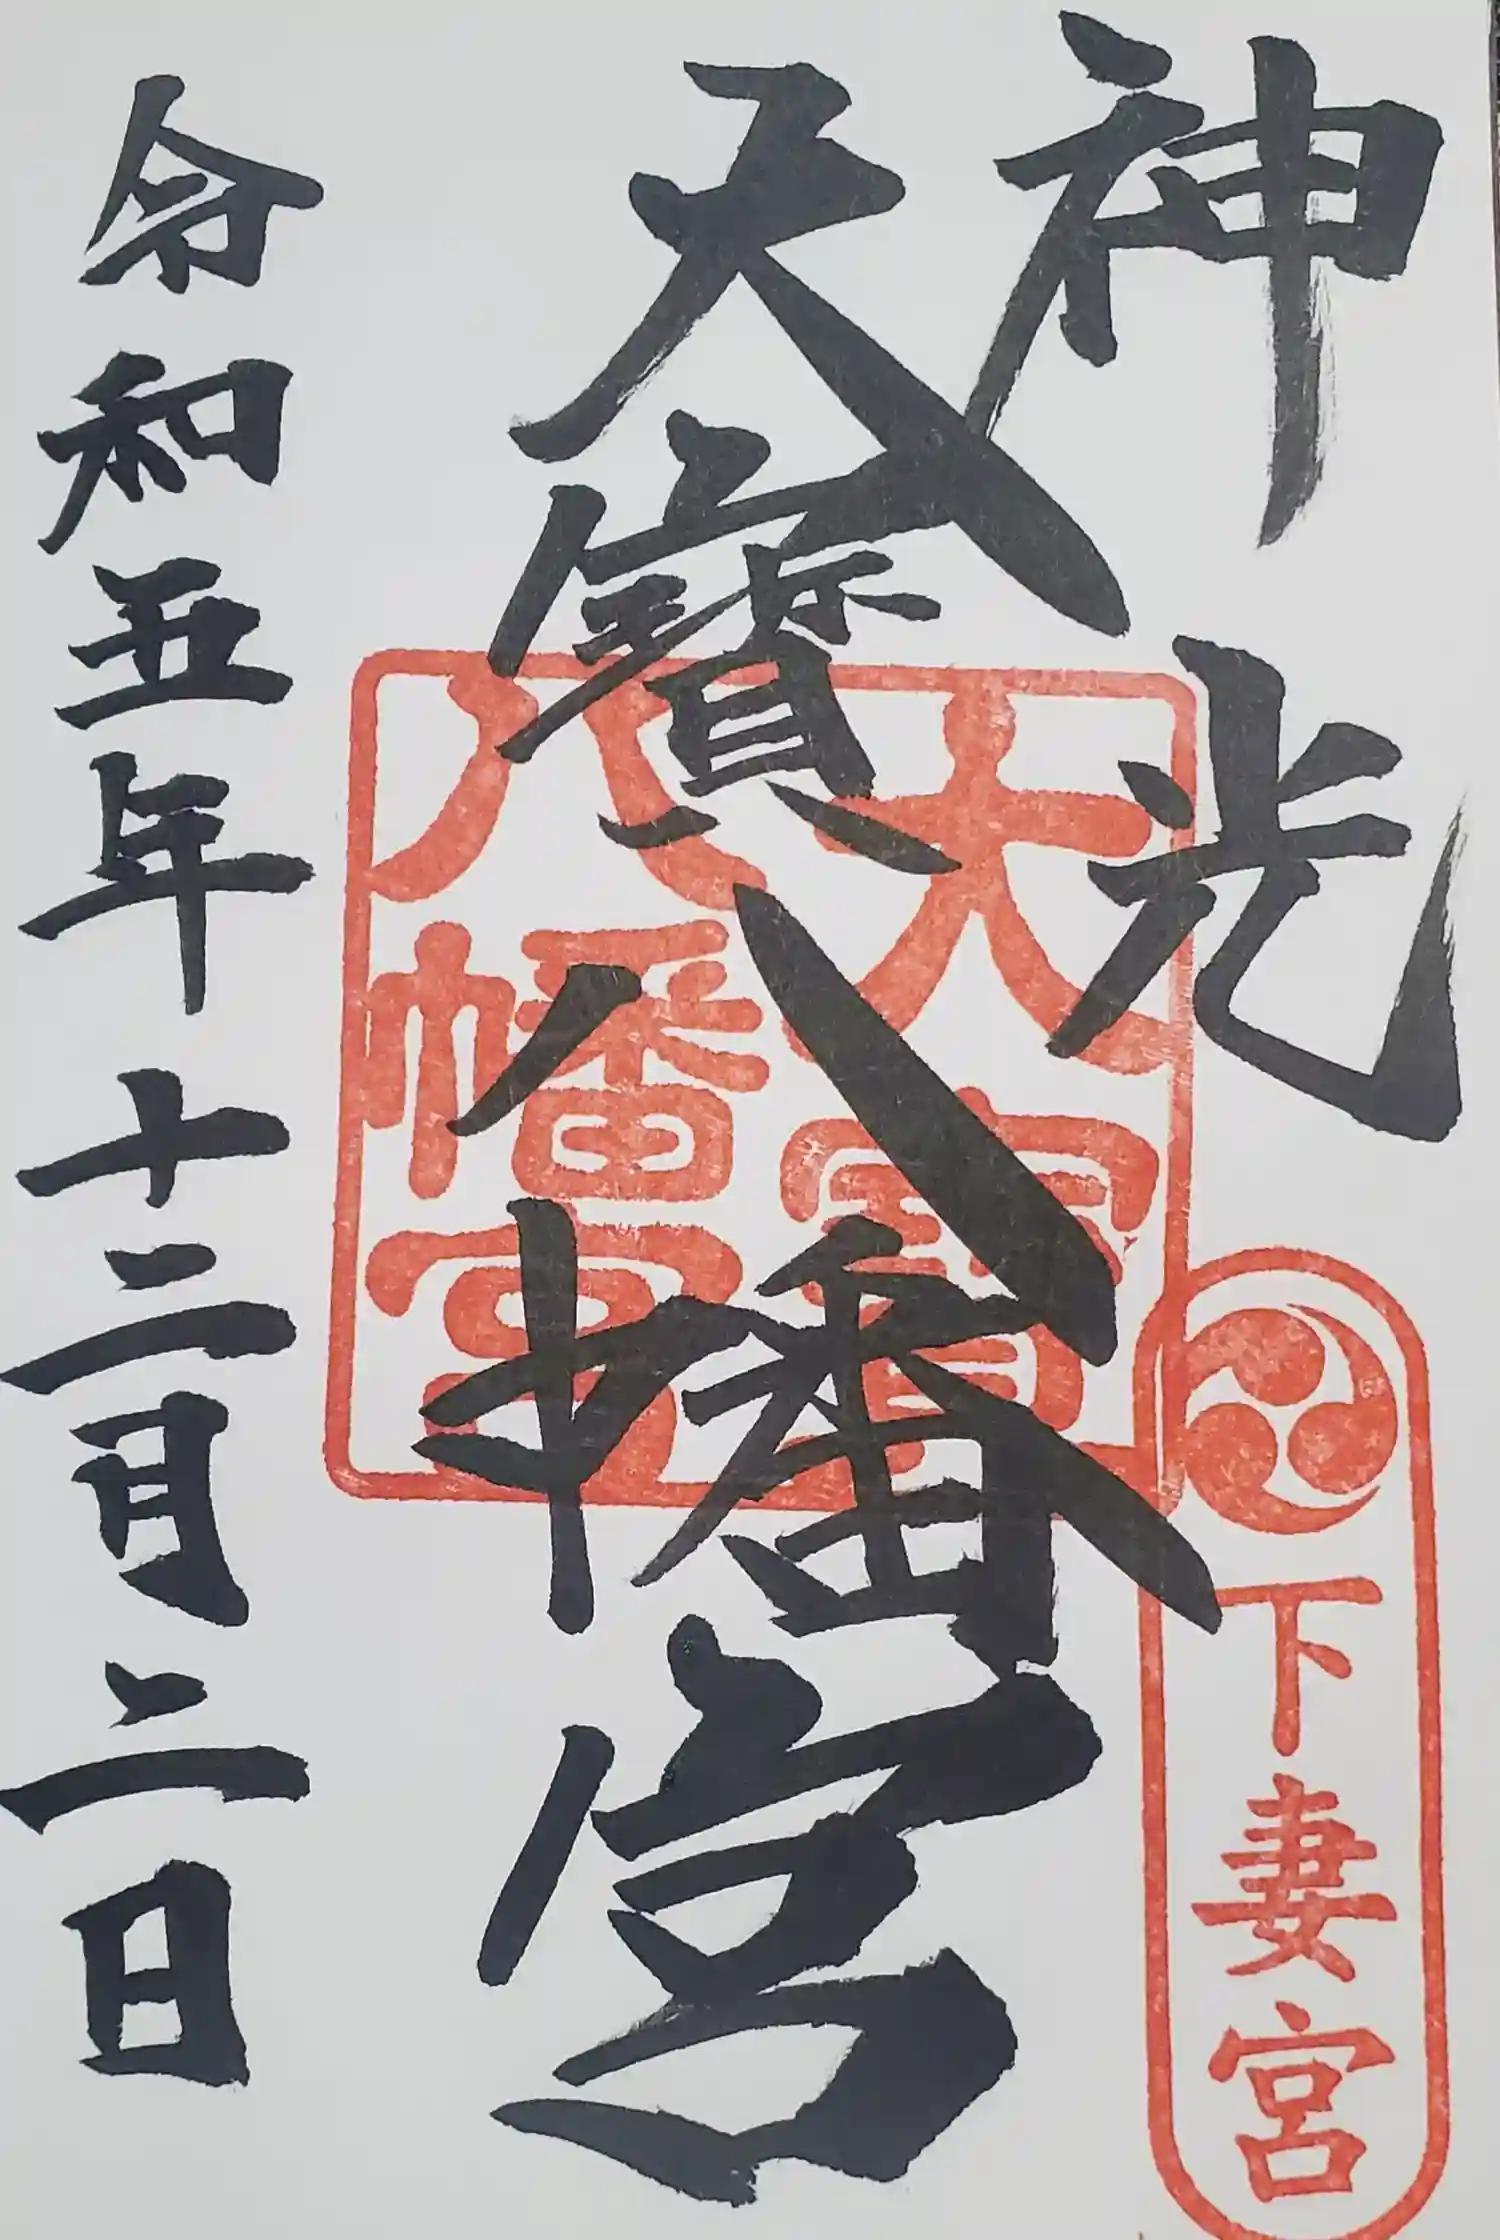 神光
下妻宮
大寶八幡宮
大寶
八幡宮
令和五年十二月二日